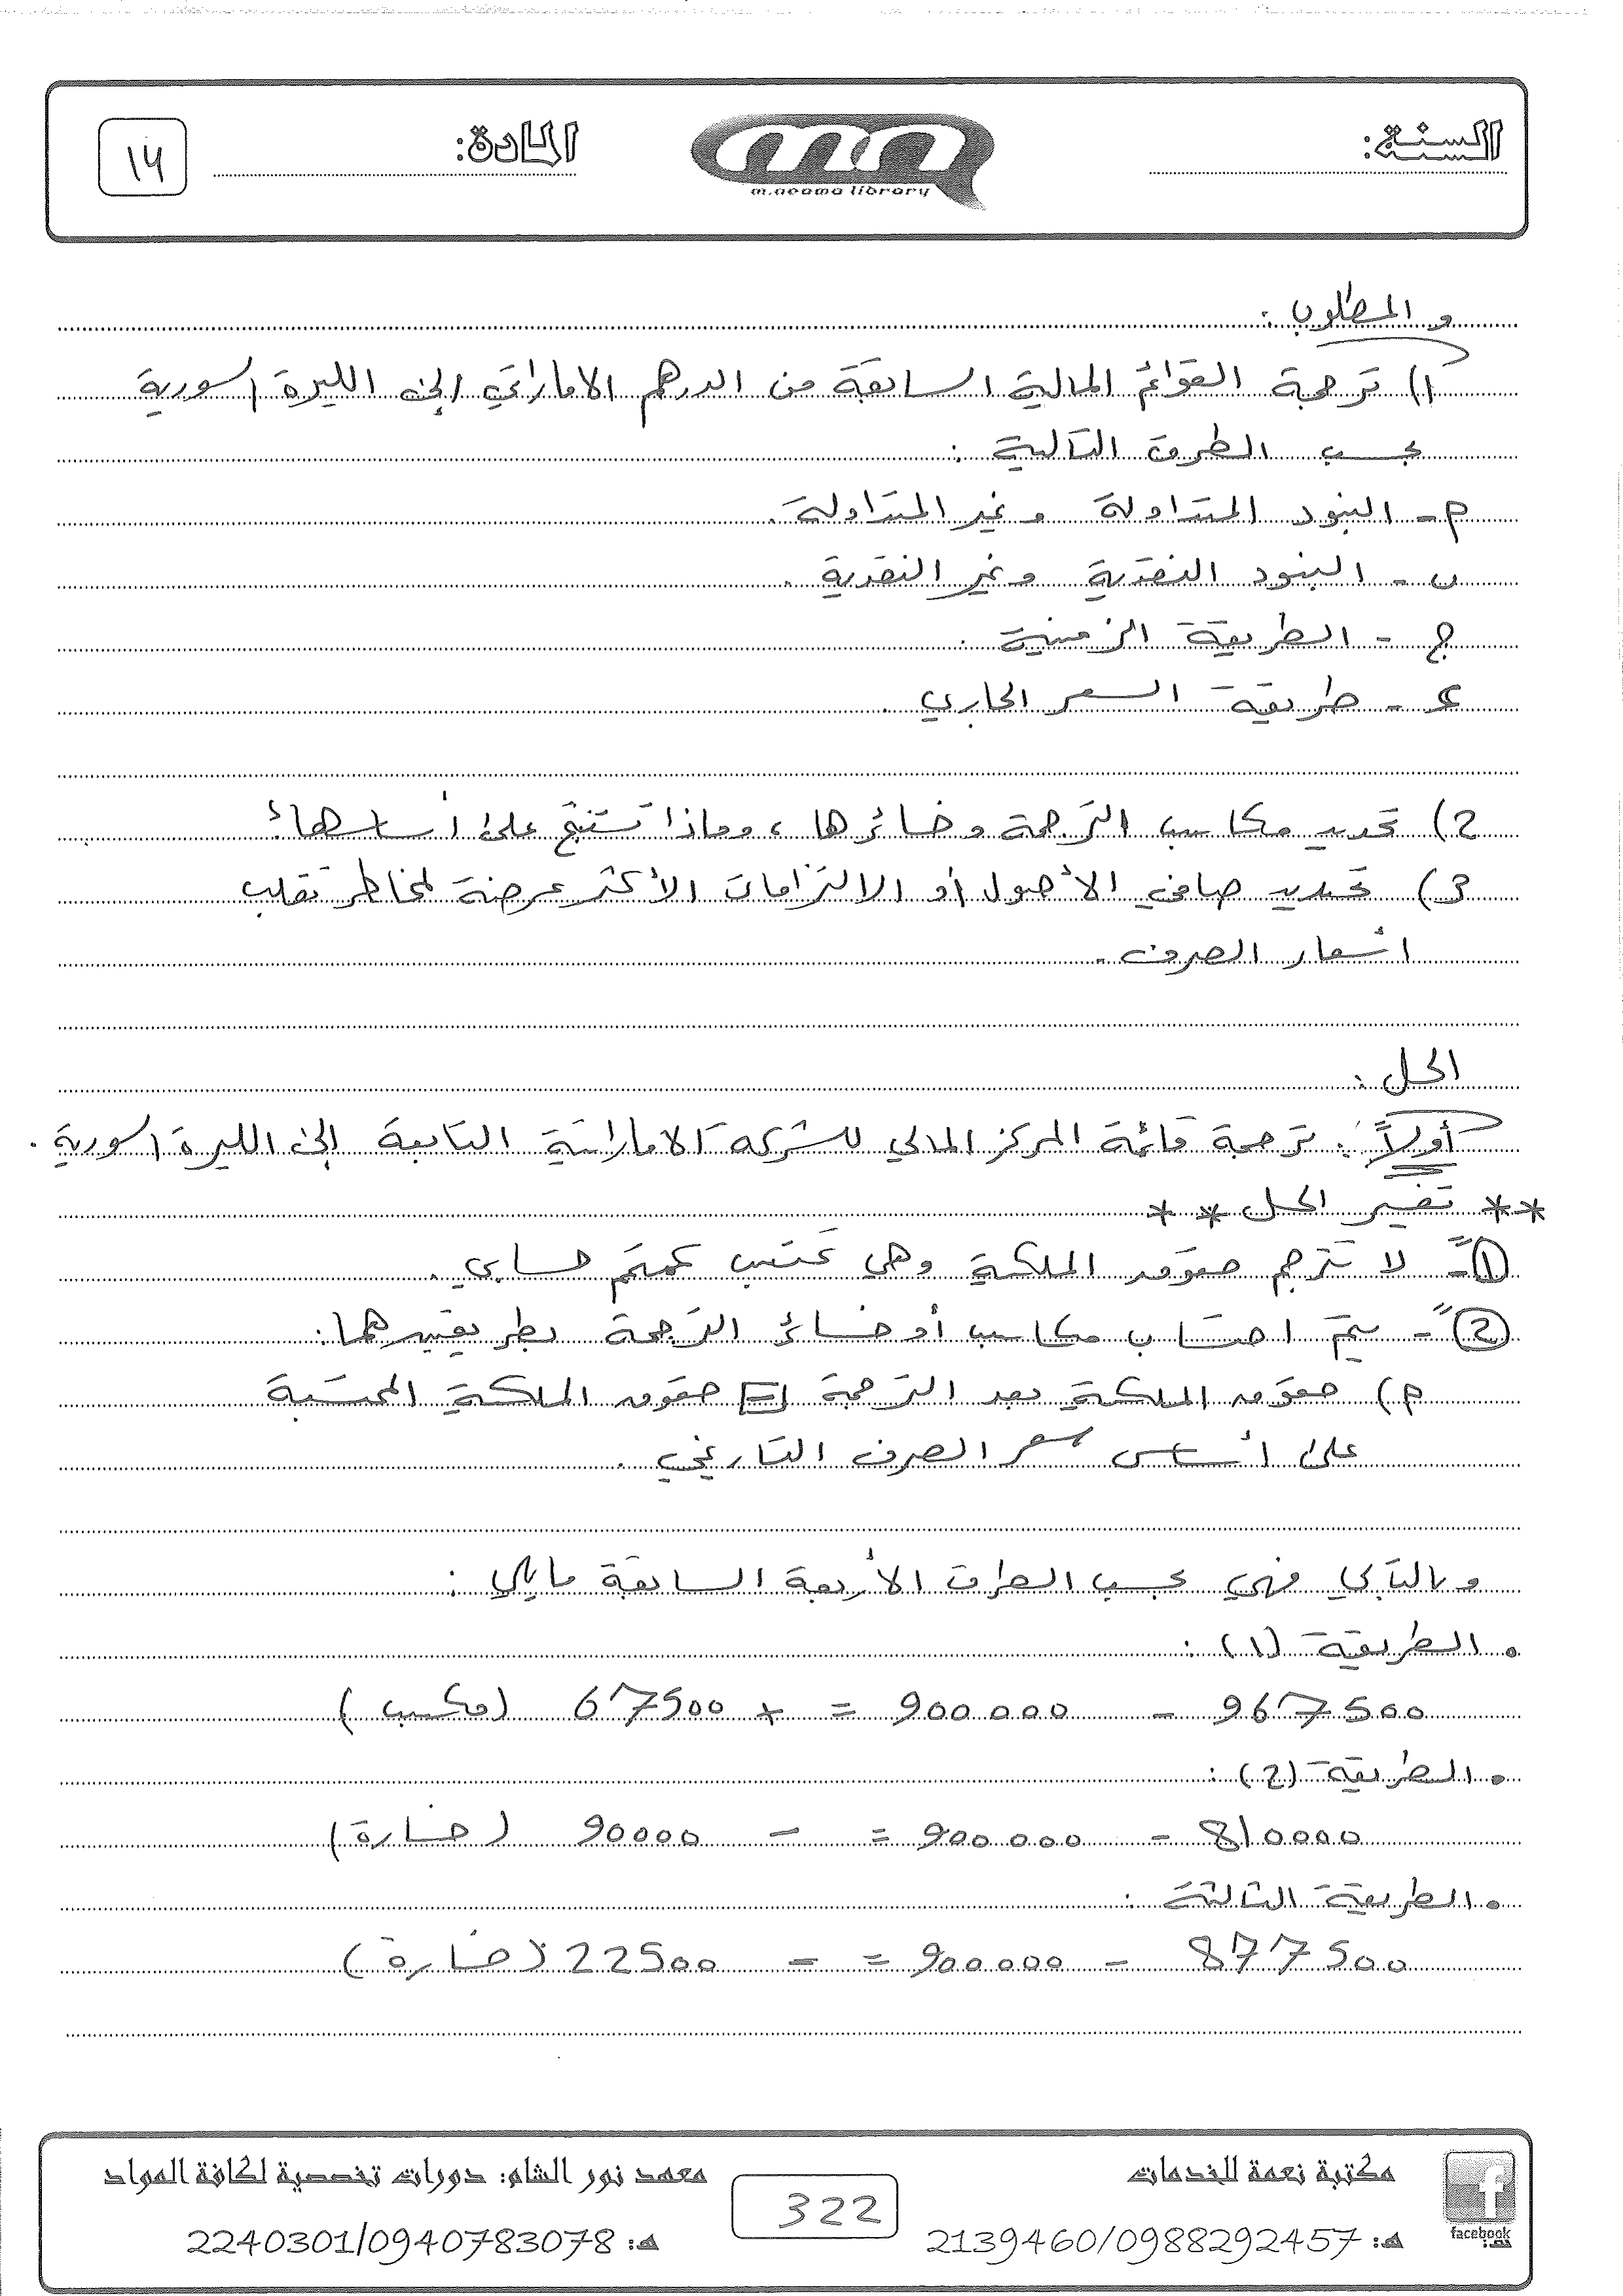 السنة:
المادة:
١٧
m.neama library
و المطلوب :
1) ترجمة القوائم المالية السابقة من الدرهم الاماراتي إلى الليرة السورية
بحسب الطرق التالية :
م - البنود المتداولة و غير المتداولة .
ب - البنود النقدية و غير النقدية .
ج - الطريقة الزمنية .
ء - طريقة السعر الجاري .
2) تحديد مكاسب الترجمة و خسائرها ، وماذا تستنتج على أساسها؟
3) تحديد صافي الأصول أو الالتزامات الأكثر عرضة لمخاطر تقلب
أسعار الصرف .
الحل :
أولاً : ترجمة قائمة المركز المالي للشركة الاماراتية التابعة إلى الليرة السورية .
** تفسير الحل **
① - لا تترجم حقوق الملكية وهي تحتسب كمتمم حسابي .
② - يتم احتساب مكاسب أو خسائر الترجمة بطريقتين هما :
م) حقوق الملكية بعد الترجمة - حقوق الملكية المحتسبة
على أساس سعر الصرف التاريخي .
و بالتالي فهي بحسب الطرق الأربعة السابقة مايلي :
• الطريقة (1) :
967500 - 900000 = + 67500 (مكسب)
• الطريقة (2) :
810000 - 900000 = - 90000 (خسارة)
• الطريقة الثالثة :
877500 - 900000 = - 22500 (خسارة)
مكتبة نعمة للخدمات
معهد نور الشام: دورات تخصصية لكافة المواد
322
هـ: 2139460/0988292457
هـ: 2240301/0940783078
facebook